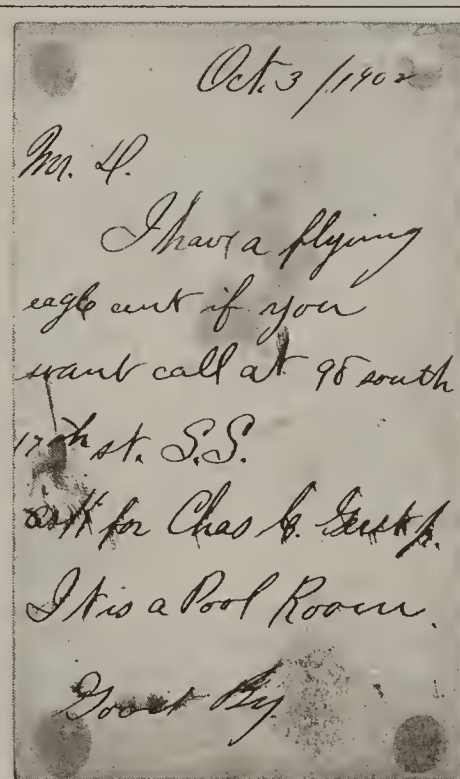 Oct. 3 / 1902
Mr. D.
I have a flying
eagle cent if you
want call at 98 south
17th st. S.S.
ask for Chas C. Jr.
It is a Pool Room.
Good By.